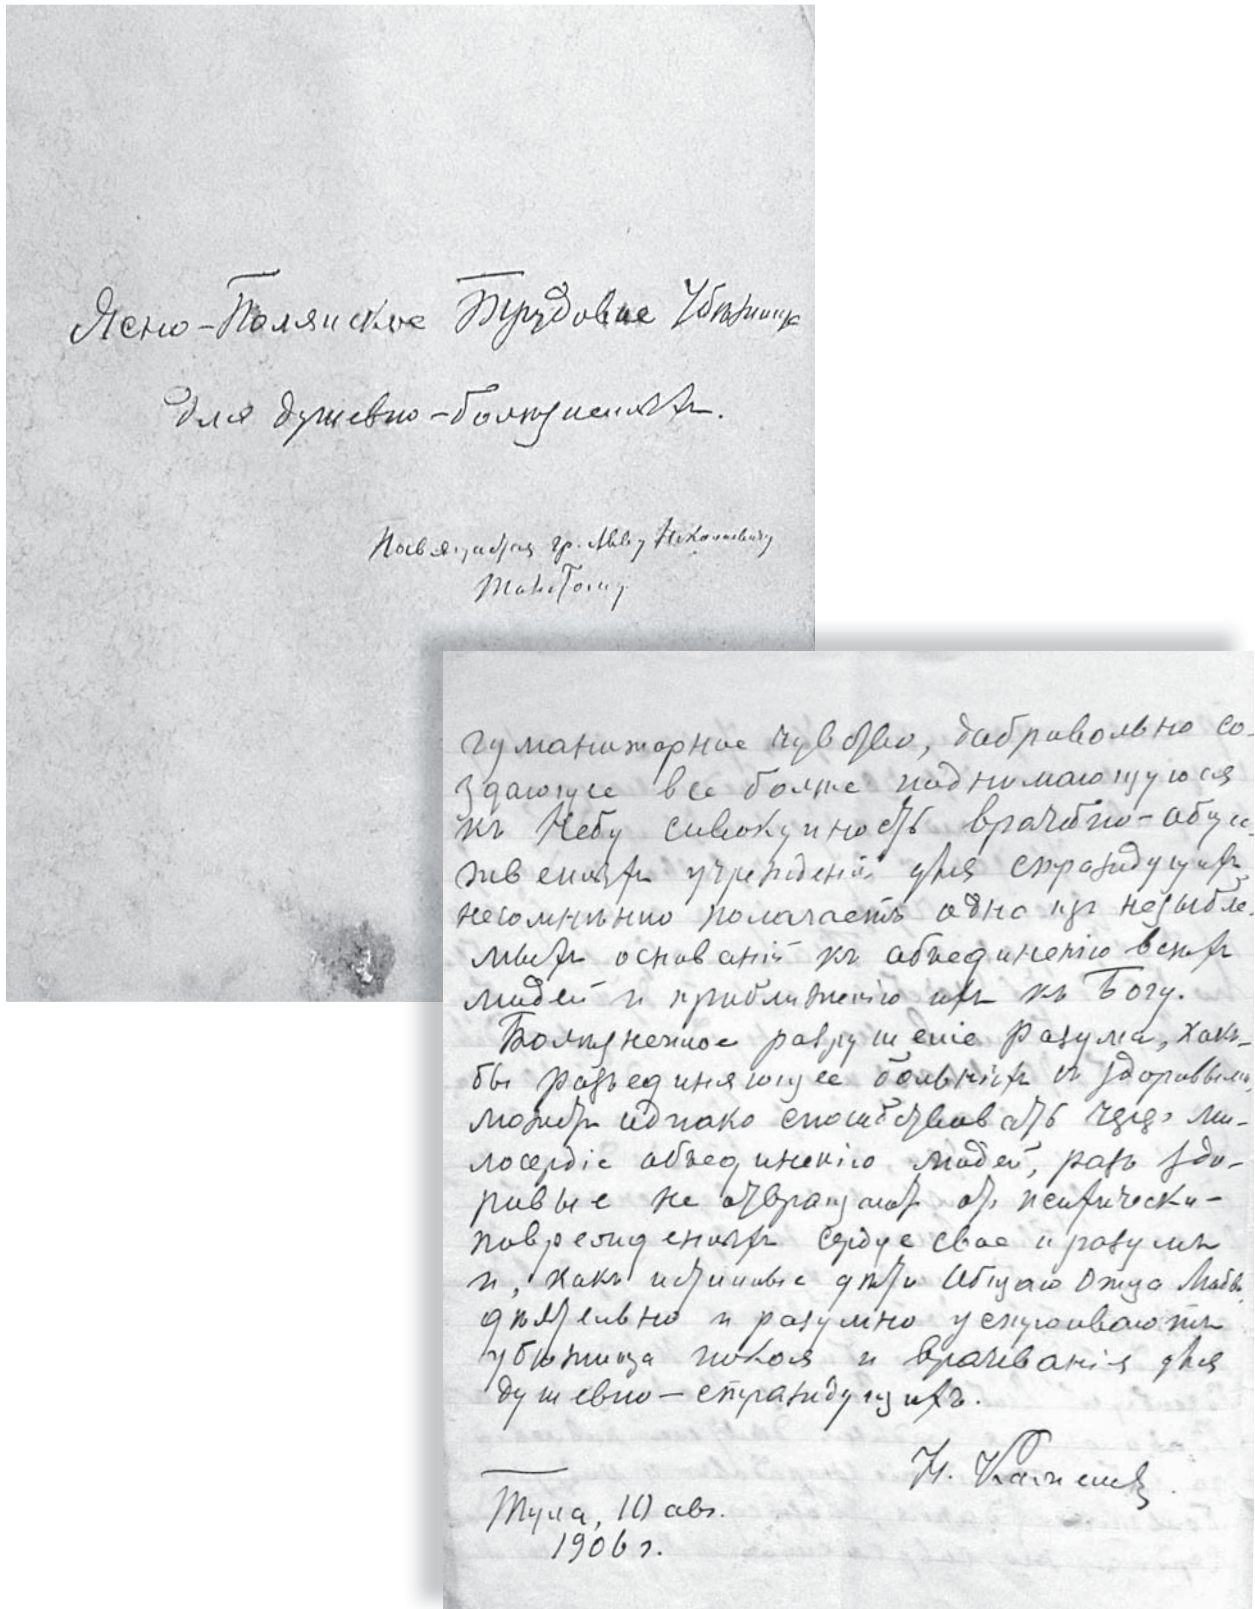 Ясно-Полянское Трудовое Убѣжище
для душевно-болѣзненныхъ.
Посвящается гр. Льву Николаевичу
Толстому
гуманитарное чувство, добровольно со-
здающее все болѣе поднимающуюся
къ Небу совокупность врачебно-обще-
ственныхъ учрежденій для страждущихъ,
несомнѣнно полагаетъ одно изъ незыбле-
мыхъ основаній къ объединенію всѣхъ
людей и приближенію ихъ къ Богу.
Болѣзненное разрушеніе разума, какъ
бы разъединяющее больныхъ съ здоровыми,
можетъ однако способствовать чрезъ ми-
лосердіе объединенію людей, разъ здо-
ровые не отвращаютъ отъ психически-
поврежденныхъ сердце свое и разумъ
и, какъ истинныя дѣти Общаго Отца Любви,
дѣятельно и разумно устраиваютъ
убѣжища покоя и врачеванія для
душевно-страждущихъ.
Н. Каменевъ
Тула, 10 авг.
1906 г.